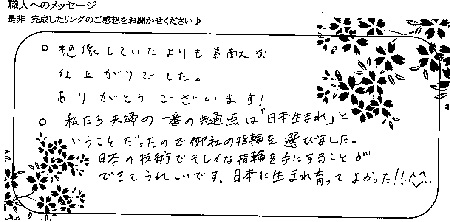 職人へのメッセージ
是非 完成したリングのご感想をお聞かせください♪
想像していたよりも素敵な
仕上がりでした。
ありがとうございます!
私たち夫婦の一番の共通点は「日本生まれ」と
いうことだったので御社の指輪を選びました。
日本の技術でキレイな指輪を手にすることが
できてうれしいです。日本に生まれ育ってよかった!!^^